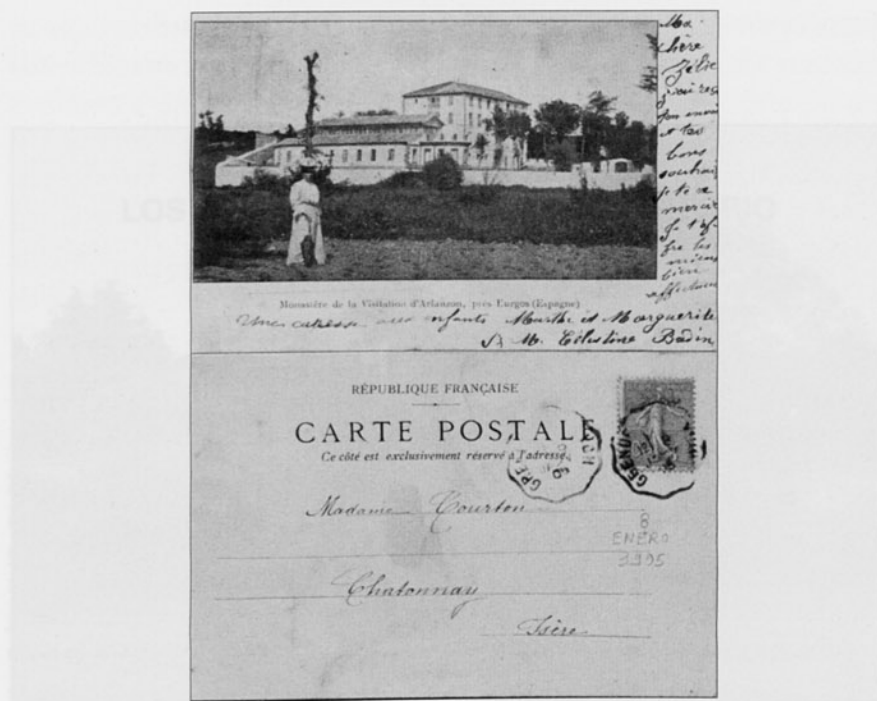 Ma
chère
Zélie
ton envoi
et tes
bons
souhaits
je te
merci
je t'of
fre les
miens
bien
affectueux
Monastère de la Visitation d'Arlanzon, près Burgos (Espagne)
Une caresse aux enfants Marthe et Marguerite
Sr M. Célestine Badin
RÉPUBLIQUE FRANÇAISE
CARTE POSTALE
Ce côté est exclusivement réservé à l'adresse.
Madame Courton
8
ENERO
Chatonnay
Isère